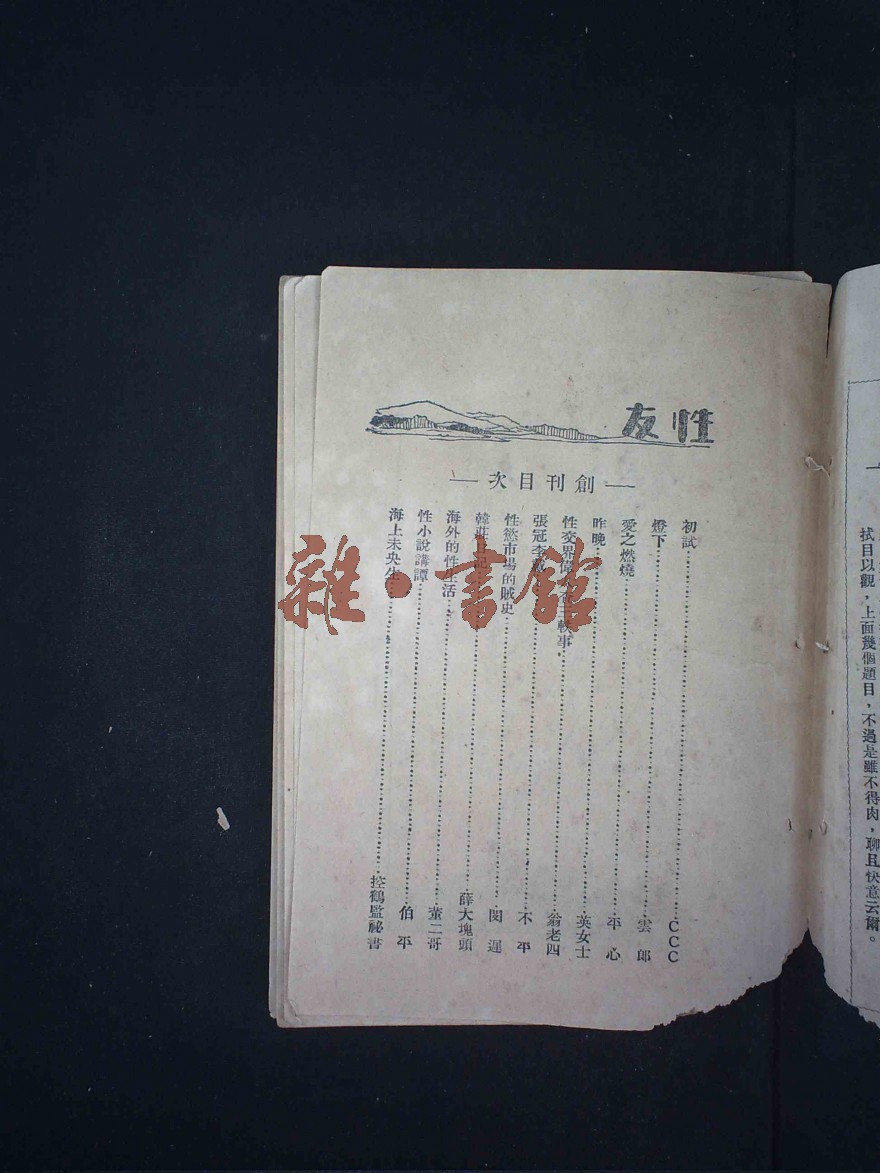 拭目以觀，上面幾個題目，不過是雖不得肉，聊且快意云爾。
性友
—創刊目次—
初試……CCC
燈下……雲郎
愛之燃燒……平心
昨晚……英女士
性交界偉三軼事……翁老四
張冠李戴……不平
性慾市場的賊史……閔遲
韓莊日記……薛大塊頭
海外的性生活……董二哥
性小說講譚……伯平
海上未央生……控鶴監祕書
雜·書館